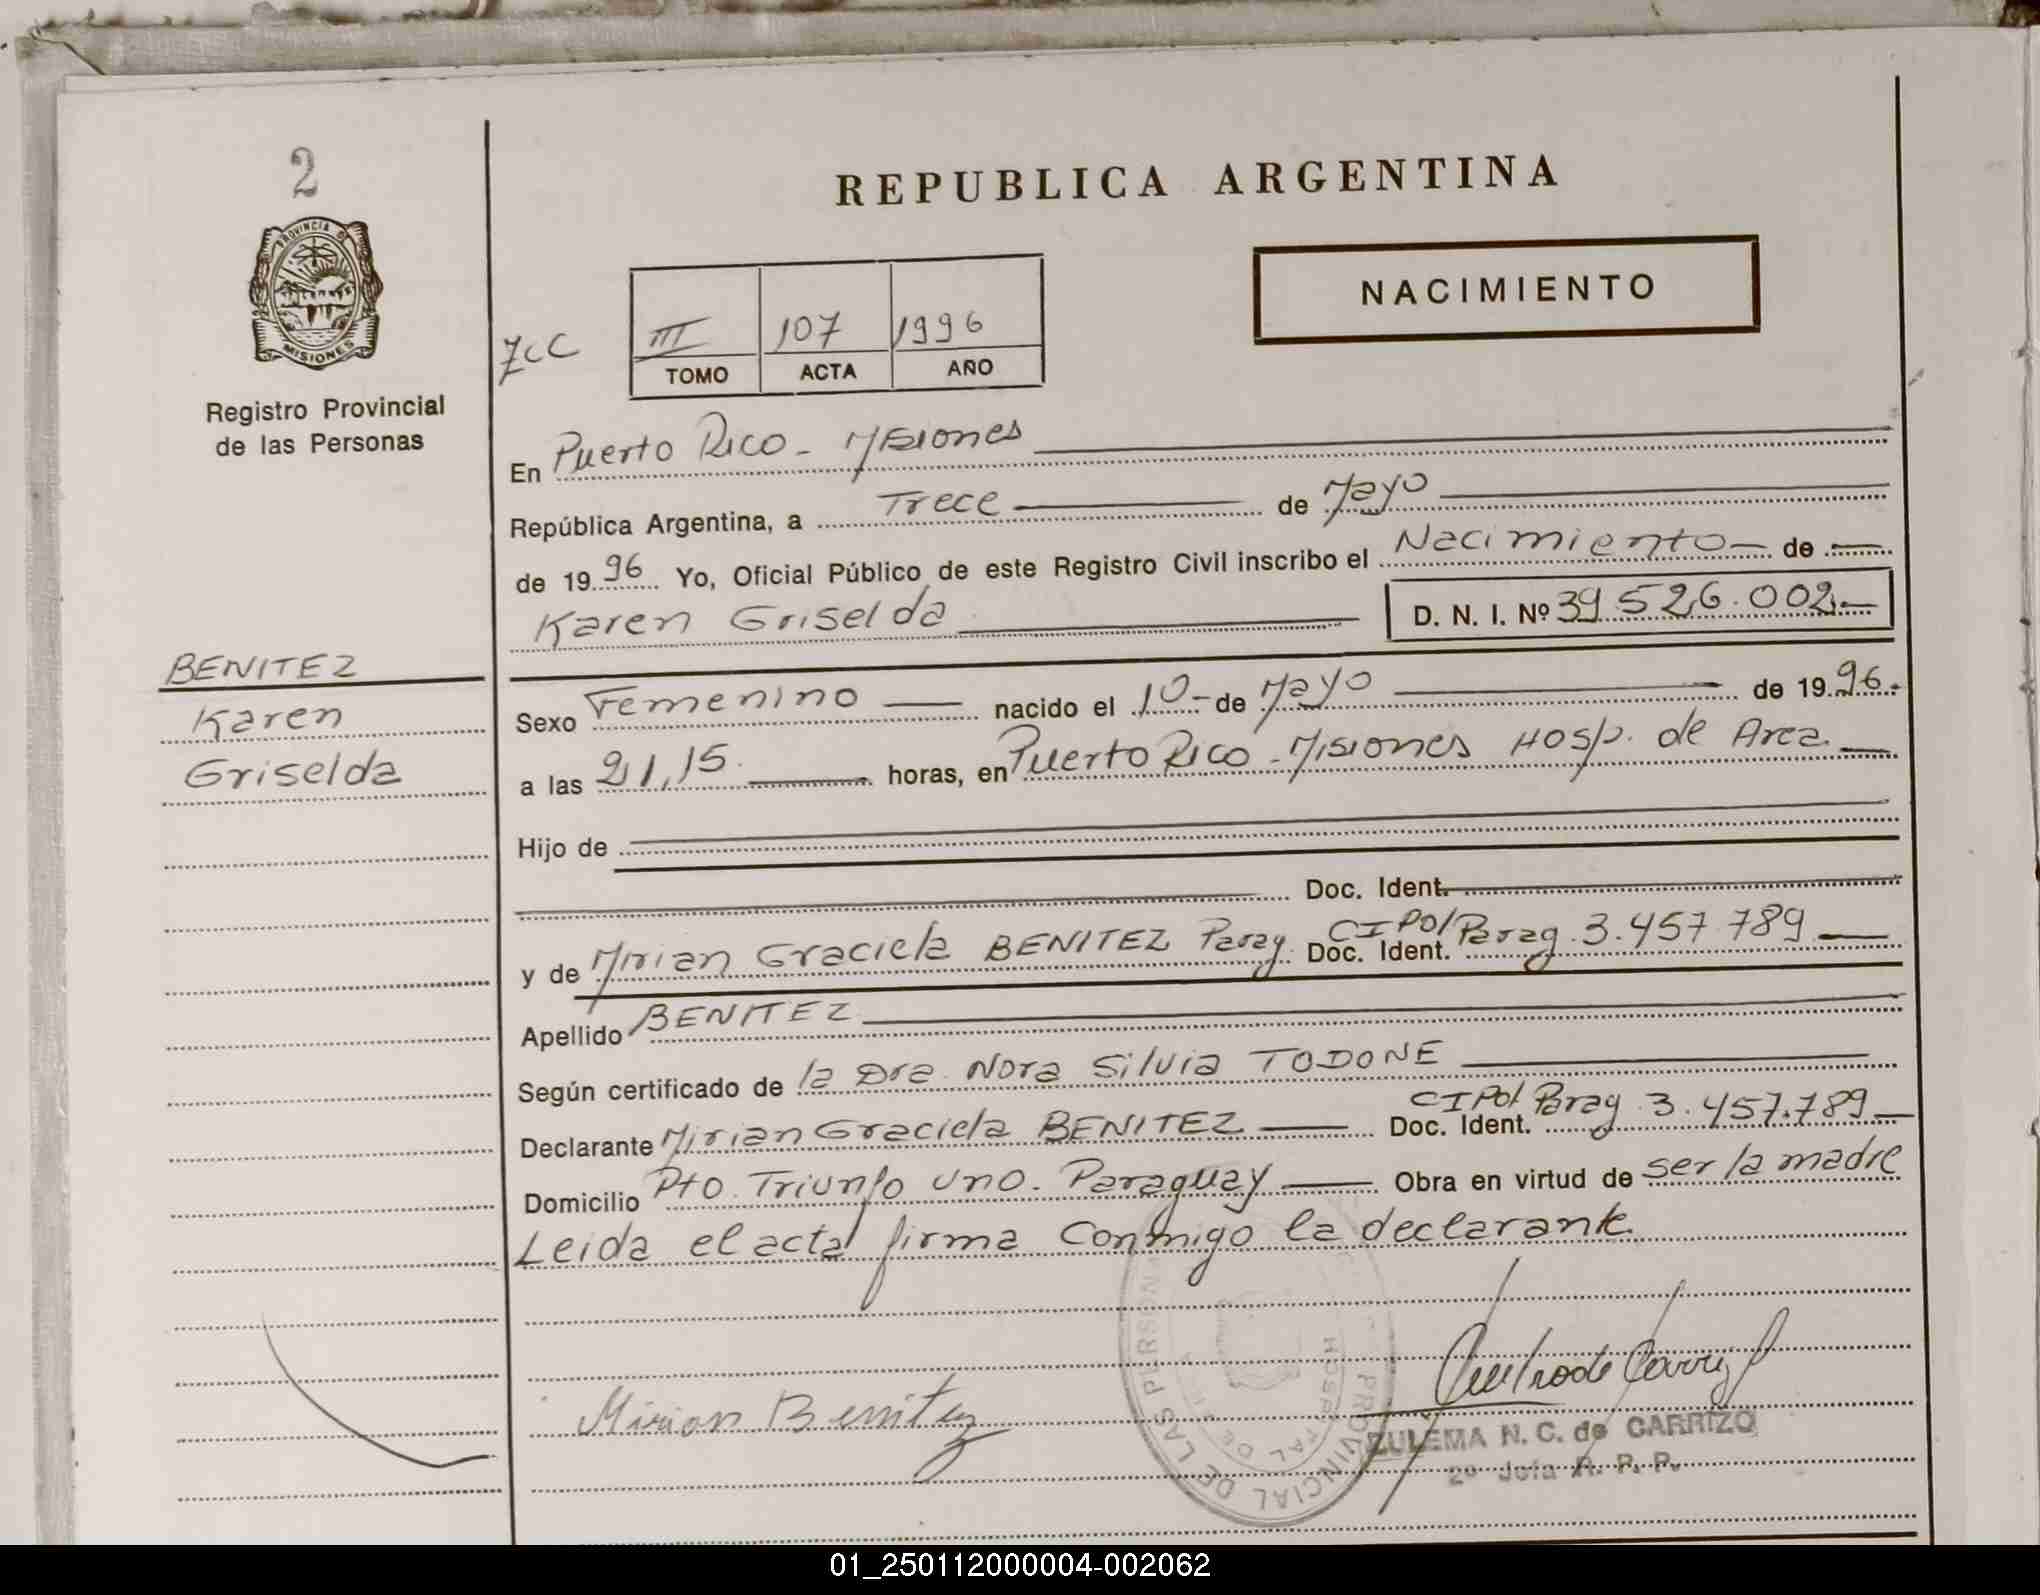 2
REPUBLICA ARGENTINA
PROVINCIA DE
MISIONES
Registro Provincial
de las Personas
NACIMIENTO
III 107 1996
TOMO ACTA AÑO
En Puerto Rico - Misiones
República Argentina, a Trece de Mayo
de 1996 Yo, Oficial Público de este Registro Civil inscribo el Nacimiento de
Karen Griselda D. N. I. Nº 39.526.002
BENITEZ
Karen
Griselda
Sexo Femenino nacido el 10 - de Mayo de 1996.
a las 21,15 horas, en Puerto Rico - Misiones Hosp. de Area
Hijo de
Doc. Ident.
y de Mirian Graciela BENITEZ Parag. Doc. Ident. CI Pol Parag. 3.457.789
Apellido BENITEZ
Según certificado de la Dra. Nora Silvia TODONE
Declarante Mirian Graciela BENITEZ Doc. Ident. CI Pol Parag. 3.457.789
Domicilio Pto. Triunfo Uno. Paraguay Obra en virtud de ser la madre
Leida el acta firma conmigo la declarante
Mirian Benitez
PROVINCIAL DE LAS PERSONAS
HOSPITAL DE
ZULEMA N. C. de CARRIZO
2º Jefa R. P. P.
01_250112000004-002062